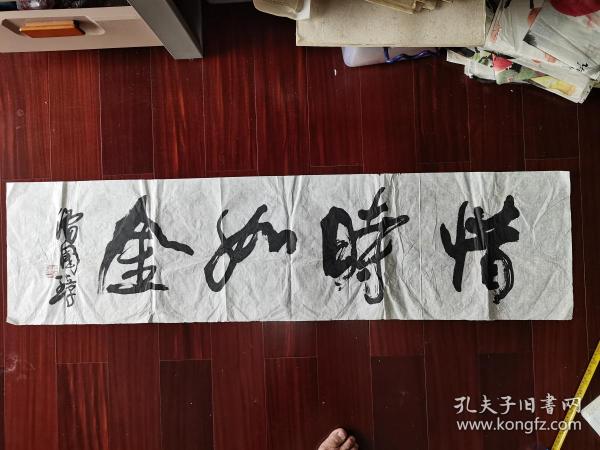 惜時如金
孔夫子旧书网
www.kongfz.com